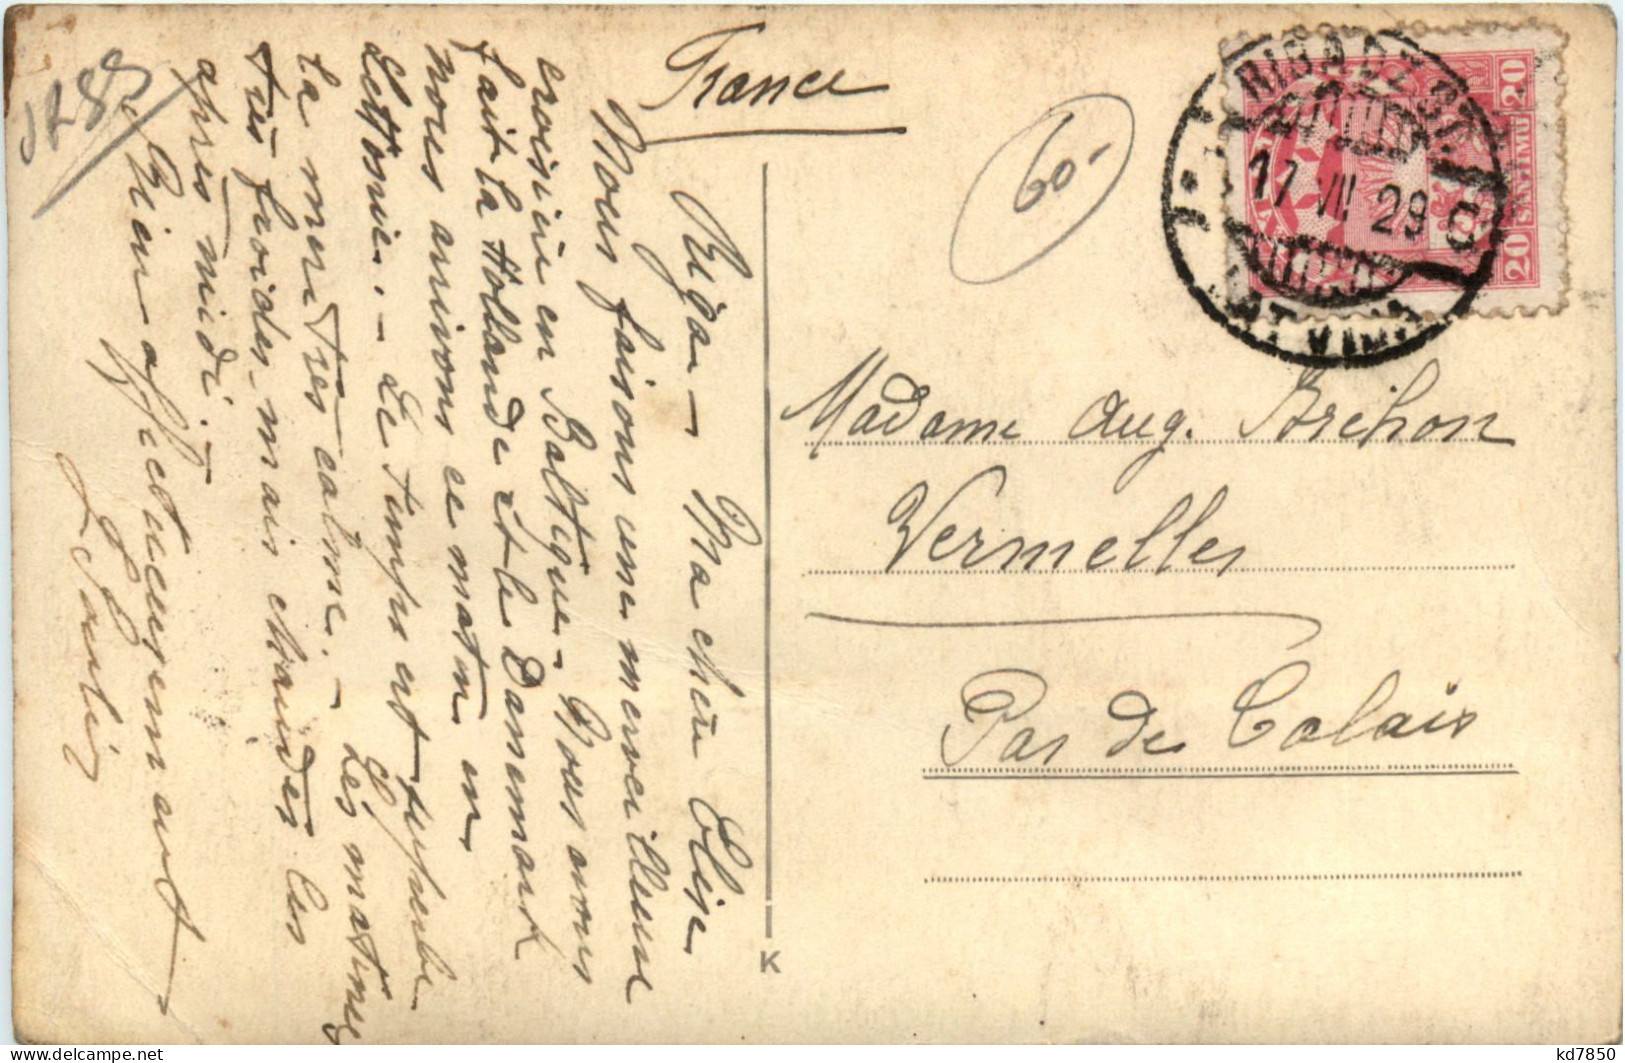 France
60.-
RIGA DZ. ST.
17 VII 29
LATVIJA
20 SANTIMU 20
Madame Aug. Brehon
Vermelles
Pas de Calais
K
Riga - Ma chère Elise
Nous faisons une merveilleuse
croisière en Baltique - Nous avons
fait la Hollande et le Danemark
nous arrivons ce matin en
Lettonie. - Le temps est superbe
la mer très calme. - Les matinées
très froides - mais chaudes les
après midi.
Bien affectueusement
kd7850